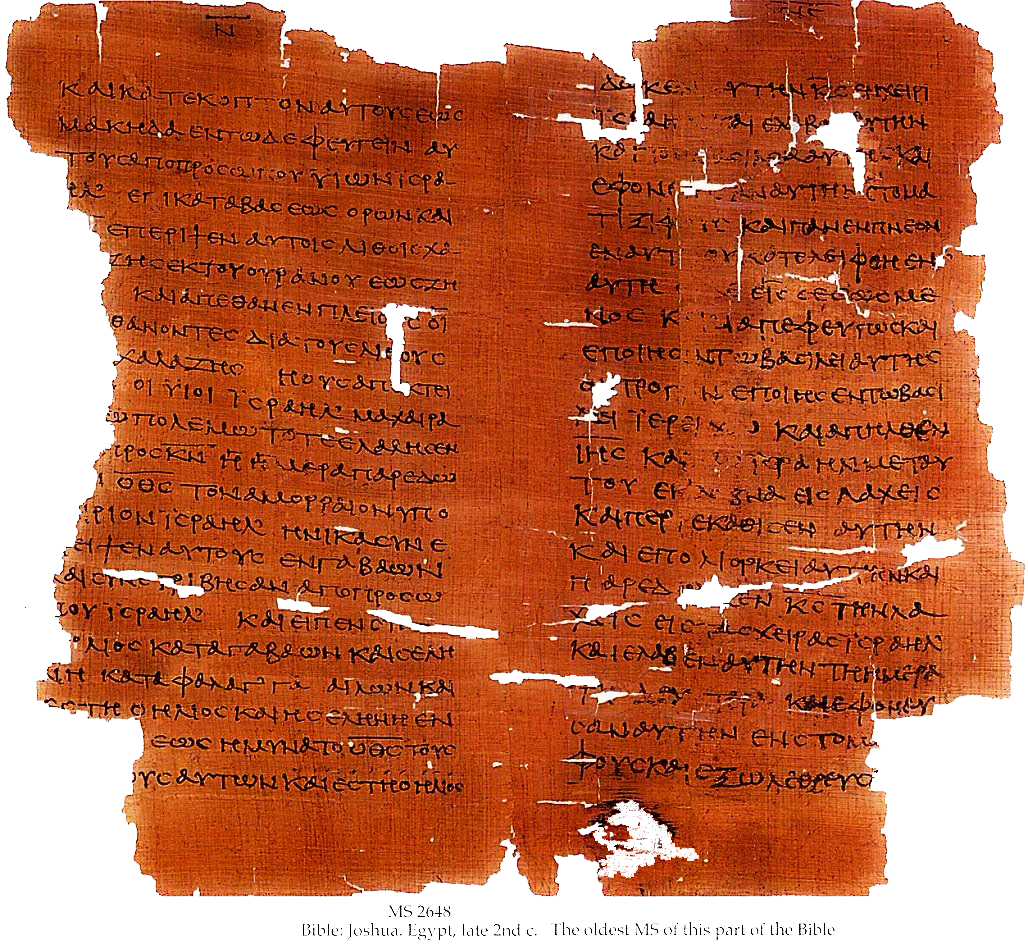 Ν
ΚΑΙ ΚΑΤΕΚΟΠΤΟΝ ΑΥΤΟΥΣ ΕΩΣ
ΜΑΚΗΔΑ ΕΝ ΤΩ ΔΕ ΦΕΥΓΕΙΝ ΑΥ
ΤΟΥΣ ΑΠΟ ΠΡΟΣΩΠΟΥ ΫΙΩΝ ΪΣΡΑ
ΗΛ ΕΠΙ ΚΑΤΑΒΑΣΕΩΣ ΟΡΩΝ ΚΑΙ
ΕΠΕΡΙΨΕΝ ΑΥΤΟΙΣ ΛΙΘΟΙΣ ΧΑ
ΖΗΣ ΕΚ ΤΟΥ ΟΥΡΑΝΟΥ ΕΩΣ ΖΗ
ΚΑΙ ΑΠΕΘΑΝΕΝ ΠΛΕΙΟΥΣ ΟΙ
ΘΑΝΟΝΤΕΣ ΔΙΑ ΤΟΥΣ ΛΙΘΟΥΣ
ΧΑΛΑΖΗΣ Η ΟΥΣ ΑΠΕΚΤΕΙ
ΟΙ ΫΙΟΙ ΪΣΡΑΗΛ ΜΑΧΑΙΡΑ
ΠΟΛΕΜΩ ΤΟΤΕ ΕΛΑΛΗΣΕΝ
ΠΡΟΣ ΚΝ Η ΗΜΕΡΑ ΠΑΡΕΔΩ
Ο ΘΣ ΤΟΝ ΑΜΟΡΡΑΙΟΝ ΥΠΟ
ΡΙΟΝ ΪΣΡΑΗΛ ΗΝΙΚΑ ΣΥΝΕ
ΨΕΝ ΑΥΤΟΥΣ ΕΝ ΓΑΒΑΩΝ
ΚΑΙ ΣΥΝΕΤΡΙΒΗΣΑΝ ΑΠΟ ΠΡΟΣΩ
ΠΟΥ ΪΣΡΑΗΛ ΚΑΙ ΕΙΠΕΝ
ΛΙΟΣ ΚΑΤΑ ΓΑΒΑΩΝ ΚΑΙ ΣΕΛΗ
ΝΗ ΚΑΤΑ ΦΑΛΑΓΓΑ ΑΙΛΩΝ ΚΑΙ
ΕΣΤΗ Ο ΗΛΙΟΣ ΚΑΙ Η ΣΕΛΗΝΗ ΕΝ
ΕΩΣ ΗΜΥΝΑΤΟ Ο ΘΣ ΤΟΥΣ
ΟΥΣ ΑΥΤΩΝ ΚΑΙ ΕΣΤΗ Ο ΗΛΙΟΣ
ΝΕ
ΔΩΚΕΝ ΑΥΤΗΝ ΚΣ ΕΝ ΧΕΙΡΙ
ΪΣΡΑΗΛ ΚΑΙ ΕΛΑΒΟΝ ΑΥΤΗΝ
ΚΑΙ ΤΟΝ ΒΑΣΙΛΕΑ ΑΥΤΗΣ ΚΑΙ
ΕΦΟΝΕΥΣΑΝ ΑΥΤΗΝ ΣΤΟΜΑ
ΤΙ ΞΙΦΟΥΣ ΚΑΙ ΠΑΝ ΕΝΠΝΕΟΝ
ΕΝ ΑΥΤΗ ΟΥ ΚΑΤΕΛΕΙΦΘΗ ΕΝ
ΑΥΤΗ ΔΙΑΣΕΣΩΣΜΕ
ΝΟΣ ΚΑΙ ΔΙΑΠΕΦΕΥΓΩΣ ΚΑΙ
ΕΠΟΙΗΣΑΝ ΤΩ ΒΑΣΙΛΕΙ ΑΥΤΗΣ
ΟΝ ΤΡΟΠΟΝ ΕΠΟΙΗΣΕΝ ΤΩ ΒΑΣΙ
ΛΕΙ ΪΕΡΕΙΧΩ ΚΑΙ ΑΠΗΛΘΕΝ
ΙΗΣ ΚΑΙ ΠΑΣ ΪΣΡΑΗΛ ΜΕΤ ΑΥ
ΤΟΥ ΕΚ ΛΕΒΝΑ ΕΙΣ ΛΑΧΕΙΣ
ΚΑΙ ΠΕΡΙΕΚΑΘΙΣΕΝ ΑΥΤΗΝ
ΚΑΙ ΕΠΟΛΙΟΡΚΕΙ ΑΥΤΗΝ ΚΑΙ
ΠΑΡΕΔΩΚΕΝ ΚΣ ΤΗΝ ΛΑ
ΧΕΙΣ ΕΙΣ ΤΑΣ ΧΕΙΡΑΣ ΪΣΡΑΗΛ
ΚΑΙ ΕΛΑΒΕΝ ΑΥΤΗΝ ΤΗ ΗΜΕΡΑ
ΤΗ ΔΕΥΤΕΡΑ ΚΑΙ ΕΦΟΝΕΥ
ΣΑΝ ΑΥΤΗΝ ΕΝ ΣΤΟΜΑ
ΦΟΥΣ ΚΑΙ ΕΞΩΛΕΘΡΕΥΣ
MS 2648
Bible: Joshua. Egypt, late 2nd c. The oldest MS of this part of the Bible